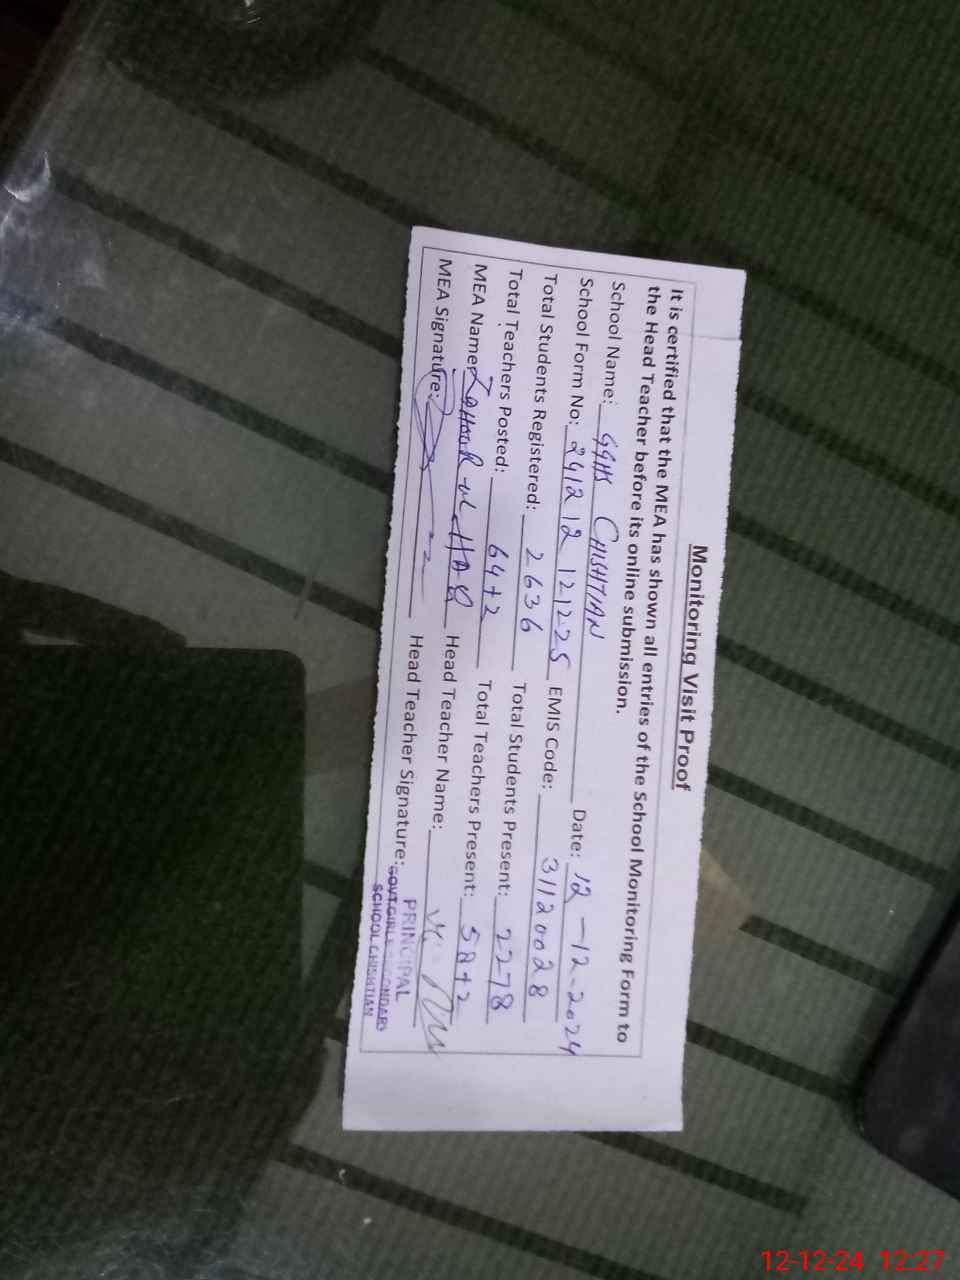 Monitoring Visit Proof
It is certified that the MEA has shown all entries of the School Monitoring Form to
the Head Teacher before its online submission.
School Name: GGHS CHISHTIAN Date: 12-12-2024
School Form No: 241212121225 EMIS Code: 31120028
Total Students Registered: 2636 Total Students Present: 2278
Total Teachers Posted: 64+2 Total Teachers Present: 58+2
MEA Name: ZAHOOR-UL-HAQ Head Teacher Name:
MEA Signature: Head Teacher Signature:
PRINCIPAL
GOVT.GIRLS SECONDARY
SCHOOL CHISHTIAN
12-12-24 12:27